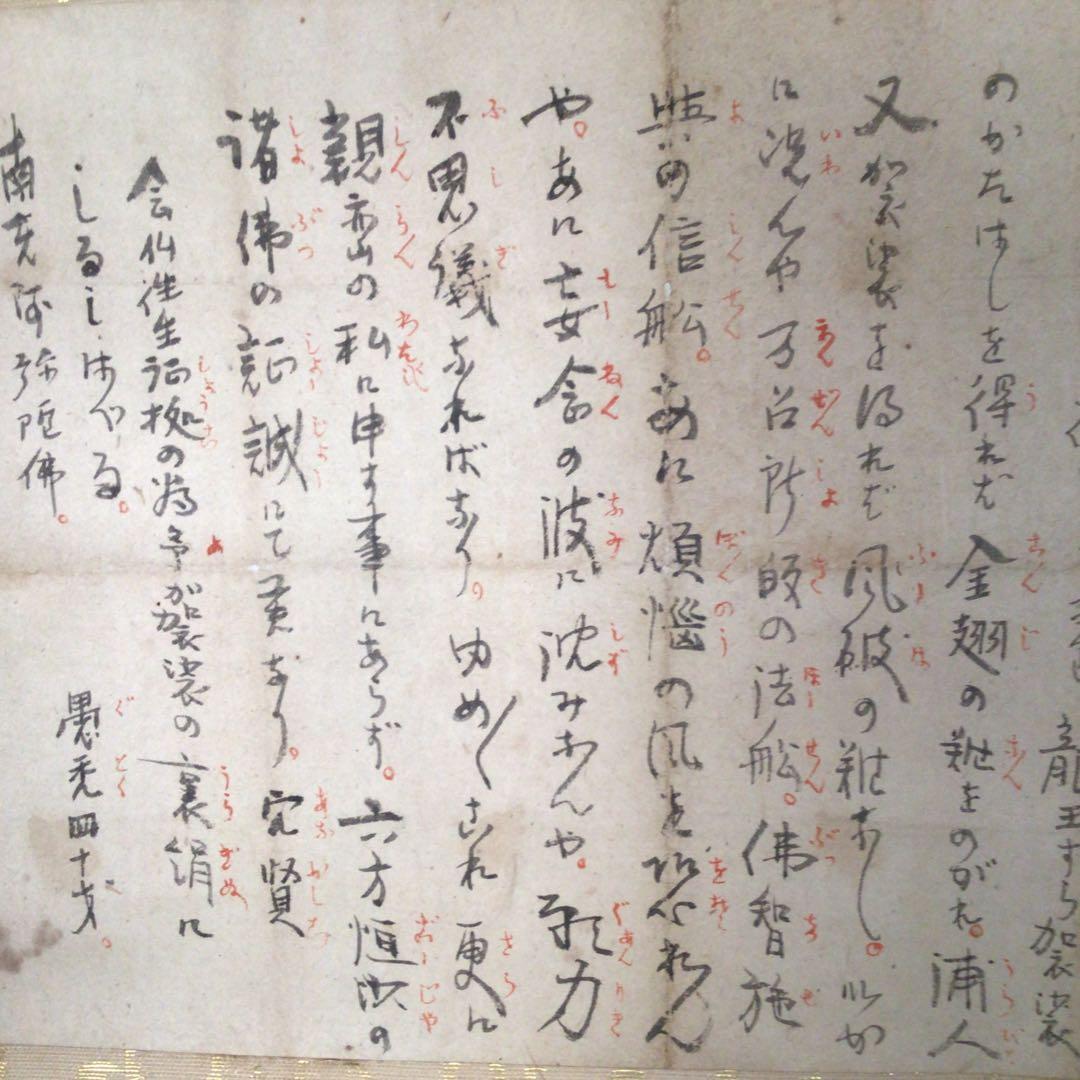 龍王すら袈裟
のかたはしを得れば金翅の難をのがれ。浦人
又袈裟を得れば風破の難なし。いか
に況んや万善所帰の法船。佛智施
與の信船。あに煩悩の風を恐れん
や。あに妄念の波に沈みなんや。願力
不思議なればなり。ゆめ〱これ更に
親鸞の私に申す事にあらず。六方恒沙の
諸佛の証誠にて実なり。穴賢
念仏往生証拠の為予袈裟の裏絹に
しるしはべる。
愚禿四十才。
南無阿弥陀佛。